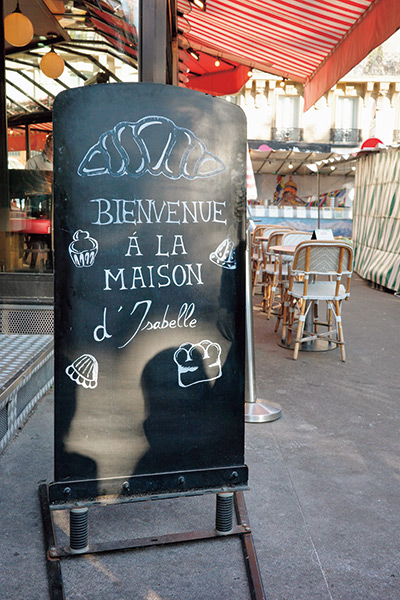 BIENVENUE
Á LA
MAISON
d'Isabelle